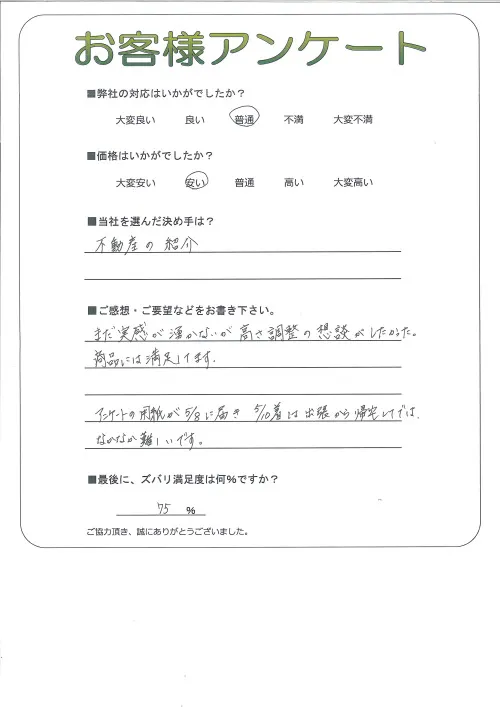 お客様アンケート
■弊社の対応はいかがでしたか？
大変良い 良い 普通 不満 大変不満
■価格はいかがでしたか？
大変安い 安い 普通 高い 大変高い
■当社を選んだ決め手は？
不動産の紹介
■ご感想・ご要望などをお書き下さい。
まだ実感が湧かないが高さ調整の想談がしたかった。
商品には満足してます.
アンケートの用紙が5/8に届き 5/10着は出張から帰宅してでは、
なかなか難しいです。
■最後に、ズバリ満足度は何％ですか？
75 ％
ご協力頂き、誠にありがとうございました。